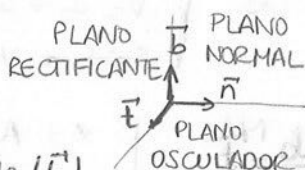 PLANO
RECTIFICANTE
b⃗
PLANO
NORMAL
n⃗
t⃗
PLANO
OSCULADOR